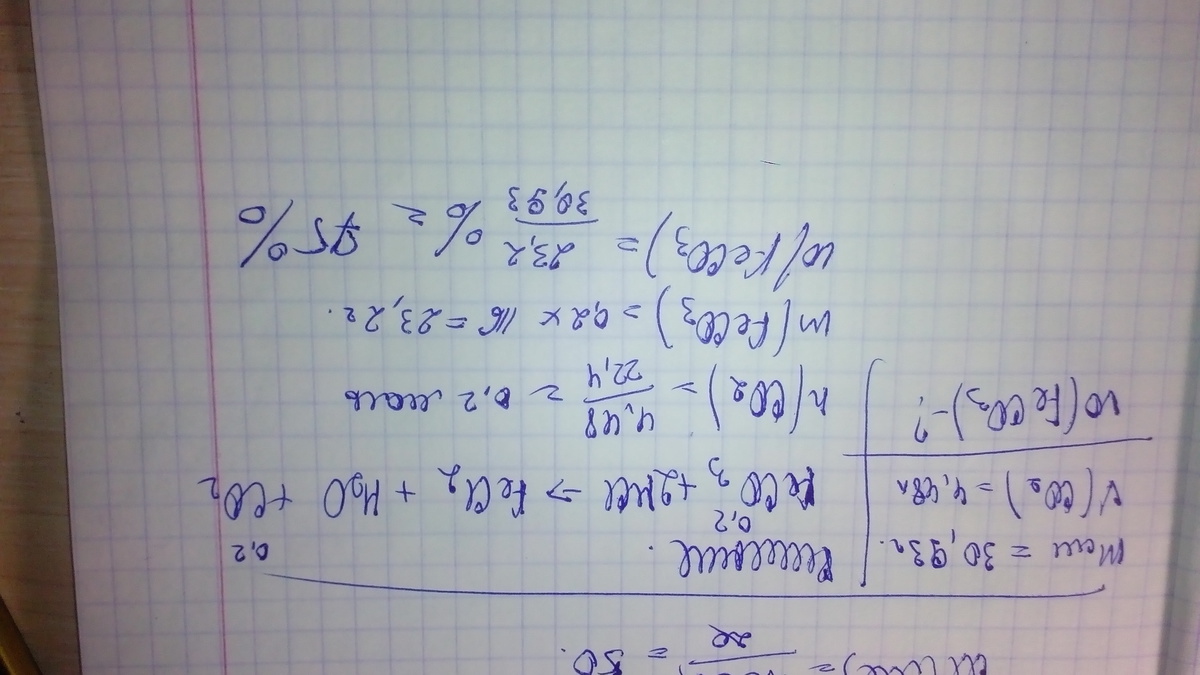 = 50.
20
m см = 30,93 г.
V(CO2) = 4,48 л
W(FeCO3) - ?
Решение.
0,2 0,2
FeCO3 + 2HCl → FeCl2 + H2O + CO2
n(CO2) = 4,48 / 22,4 = 0,2 моль
m(FeCO3) = 0,2 x 116 = 23,2 г.
W(FeCO3) = 23,2 / 30,93 % = 75%